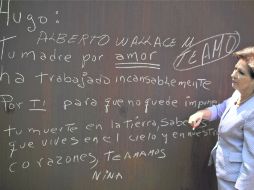 Hugo:
ALBERTO WALLACE M
Tu madre por amor TE AMO
ha trabajado incansablemente
Por TI para que no quede impune
tu muerte en la tierra, Sabe
que vives en el cielo y en nues
corazones, TE AMAMOS
NINA